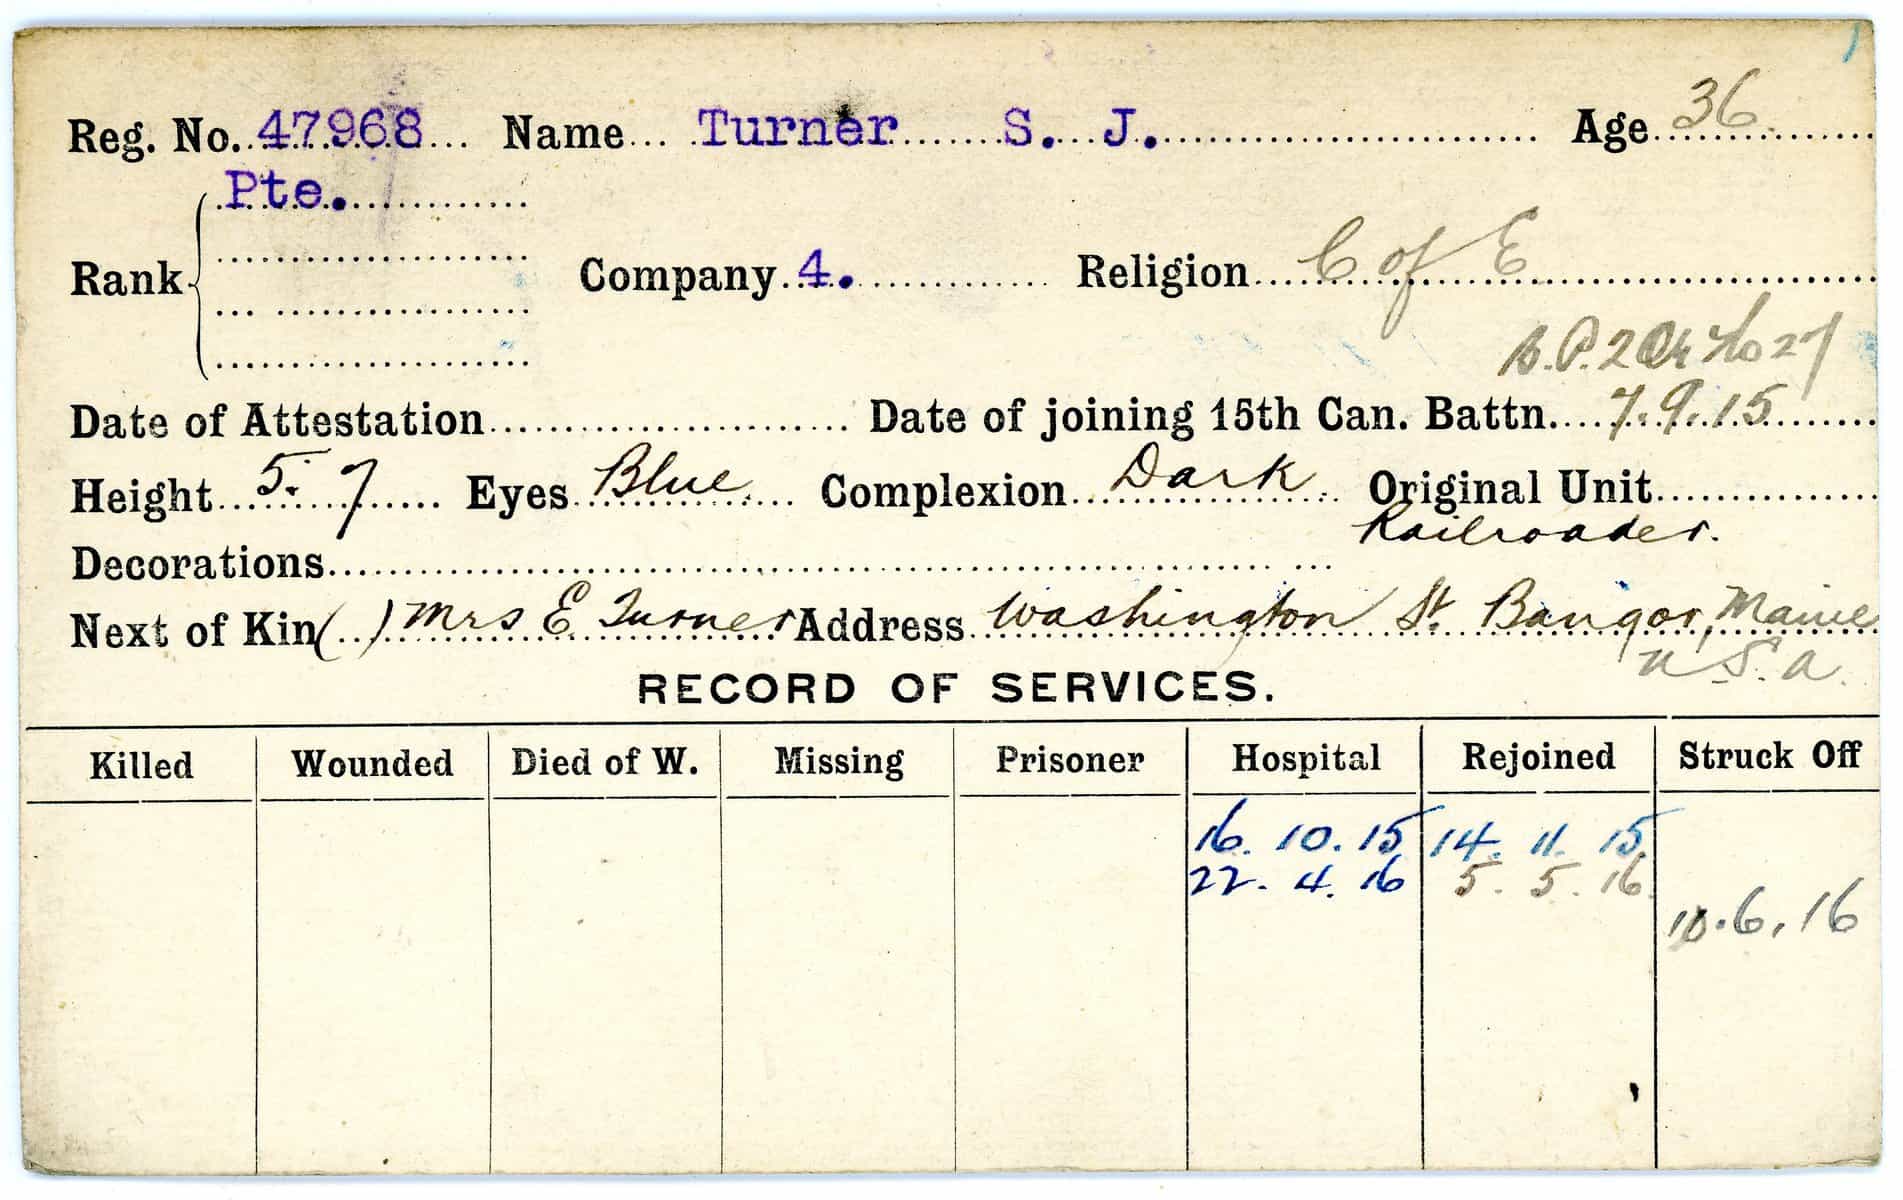 Reg. No. 47968 Name Turner S. J. Age 36
Pte.
Rank Company 4. Religion C of E
B.P. 2 Or No 27
Date of Attestation Date of joining 15th Can. Battn. 7.9.15
Height 5.7 Eyes Blue Complexion Dark Original Unit
Railroader.
Decorations
Next of Kin ( ) Mrs E. Turner Address Washington St. Bangor, Maine
U.S.A.
RECORD OF SERVICES.
Killed Wounded Died of W. Missing Prisoner Hospital Rejoined Struck Off
16. 10. 15 14. 11. 15
22. 4. 16 5. 5. 16
10.6.16